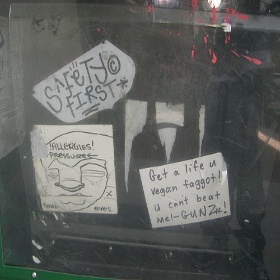 SAFETY ©
FIRST
?ALLERGIES!
PRESSURES
Get a life u
vegan faggot!
u cant beat
me!-GUNZR!